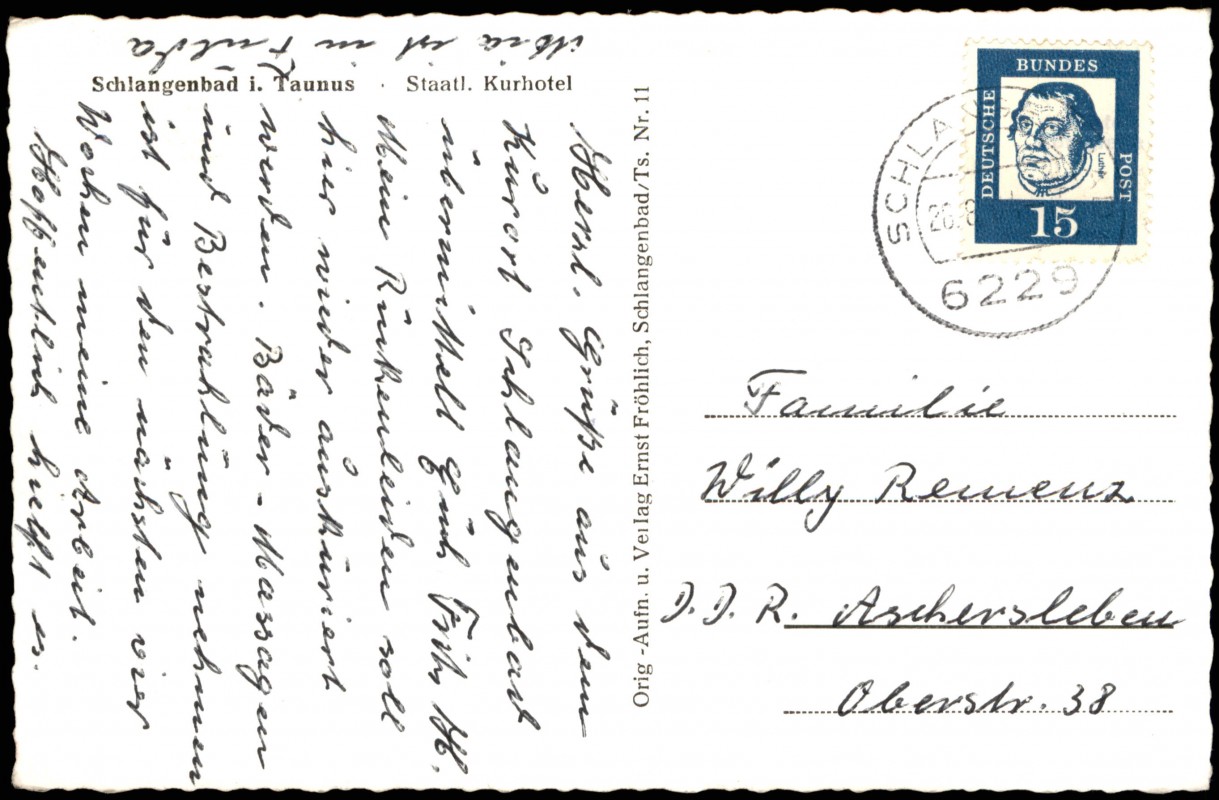 Schlangenbad i. Taunus · Staatl. Kurhotel
Herzl. Grüße aus dem
Kurort Schlangenbad
übermittelt Euch Fritz H.
Mein Rückenleiden soll
hier wieder auskuriert
werden. Bäder - Massagen
und Bestrahlung nehmen
ist für den nächsten vier
Wochen meine Arbeit.
Hoffentlich hilft es.
ist in Fulda
Orig -Aufn. u. Verlag Ernst Fröhlich, Schlangenbad/Ts. Nr. 11
DEUTSCHE
BUNDES
POST
Luther
15
SCHLANG
26.8.
6229
Familie
Willy Remenz
D.D.R. Aschersleben
Oberstr. 38